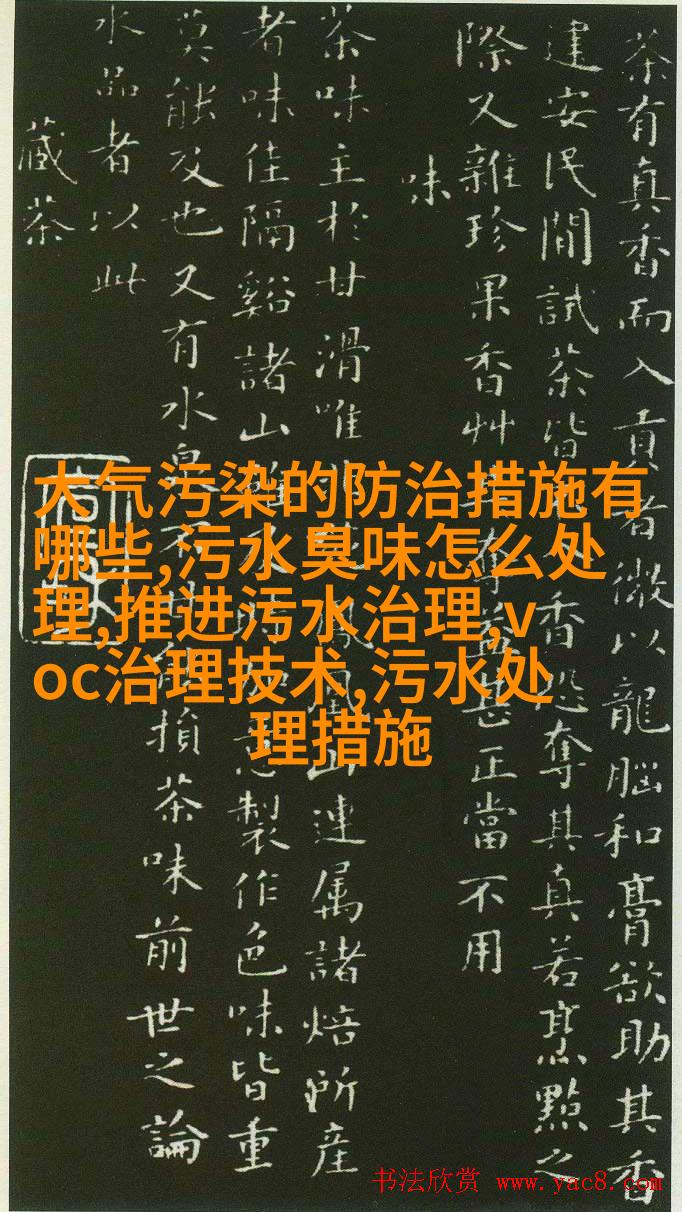 茶有真香而入貢者微以龍腦和膏欲助其香
建安民間試茶皆香恐奪其真若烹點之
際又雜珍果香艸奪甚正當不用
味
茶味主於甘滑唯鳳山連属諸焙所産
者味佳隔谿諸山製作色味皆重
莫能及也又有水泉損茶味前世之論
水品者以此
藏茶
大气污染的防治措施有
哪些,污水臭味怎么处
理,推进污水治理,v
oc治理技术,污水处
理措施
书法欣赏 www.yac8.com